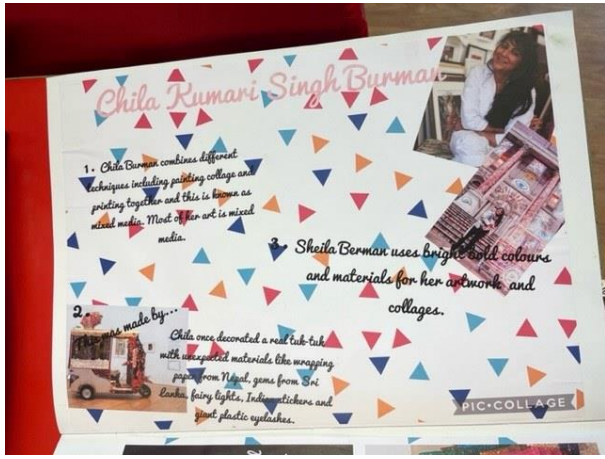 Chila Kumari Singh Burman
1. Chila Burman combines different
techniques including painting collage and
printing together and this is known as
mixed media. Most of her art is mixed
media.
3. Sheila Berman uses bright bold colours
and materials for her artwork and
collages.
2.
This was made by...
Chila once decorated a real tuk-tuk
with unexpected materials like wrapping
paper from Nepal, gems from Sri
Lanka, fairy lights, Indian stickers and
giant plastic eyelashes.
PIC•COLLAGE